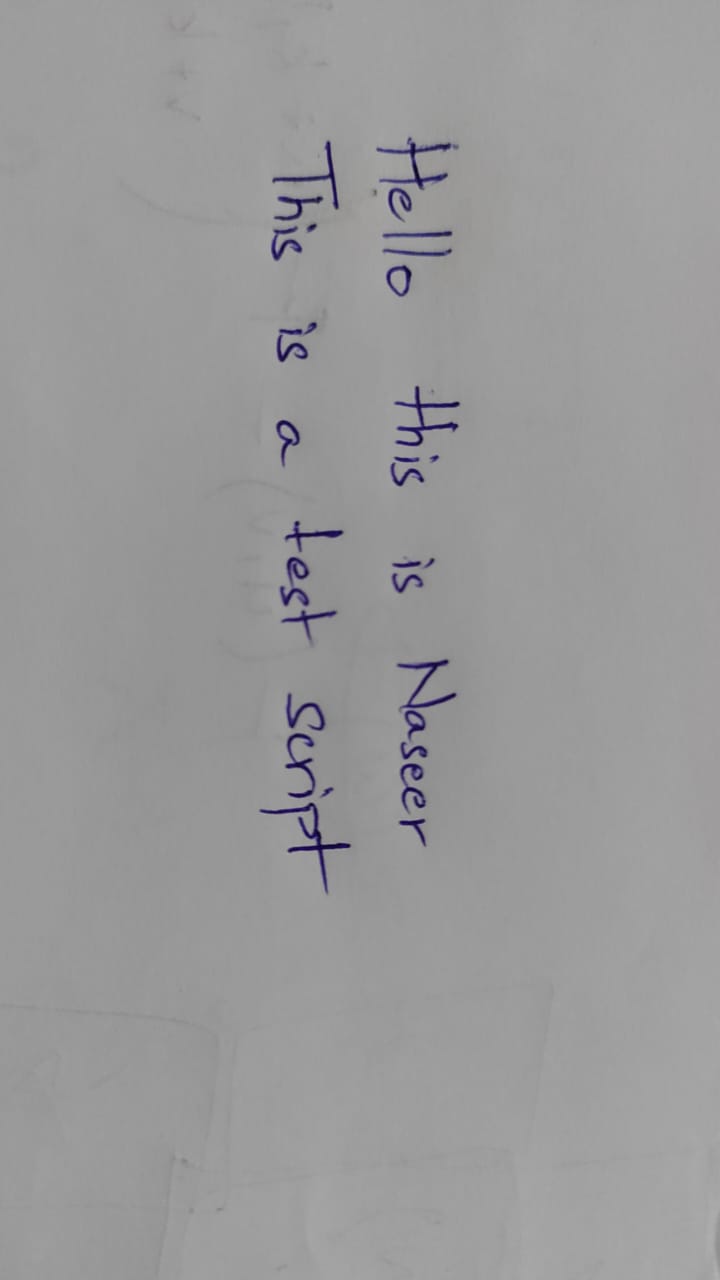 Hello this is Naseer
This is a test script